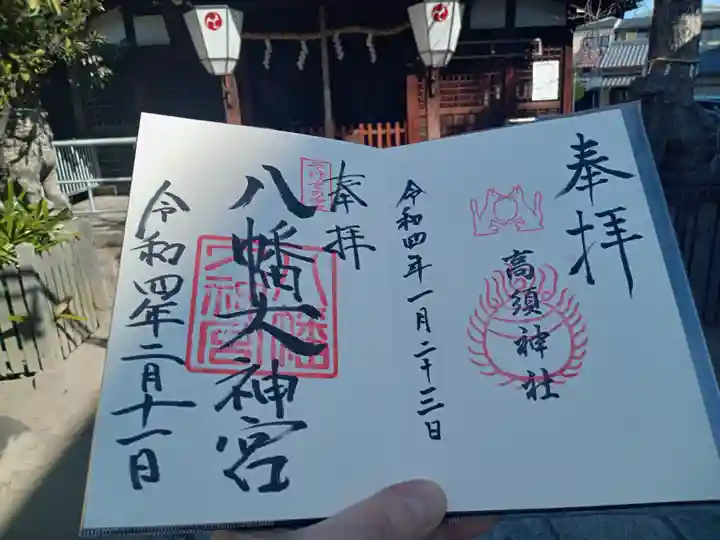 奉拝
高須神社
令和四年一月二十三日
奉拝
八幡大神宮
令和四年二月十一日
八幡
大神宮